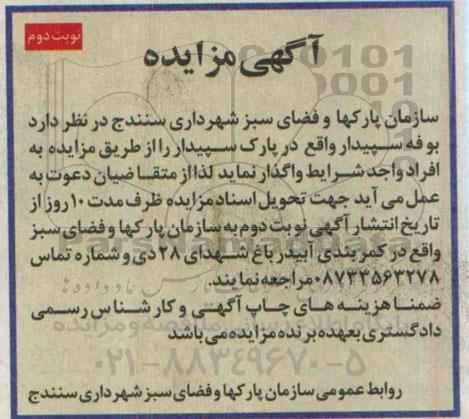 نوبت دوم
آگهی مزایده
سازمان پارکها و فضای سبز شهرداری سنندج در نظر دارد
بوفه سپیدار واقع در پارک سپیدار را از طریق مزایده به
افراد واجد شرایط واگذار نماید لذا از متقاضیان دعوت به
عمل می آید جهت تحویل اسناد مزایده ظرف مدت ۱۰ روز از
تاریخ انتشار آگهی نوبت دوم به سازمان پارکها و فضای سبز
واقع در کمربندی آبیدر باغ شهدای ۲۸ دی و شماره تماس
۰۸۷۳۳۵۶۳۲۷۸ مراجعه نمایند.
ضمنا هزینه های چاپ آگهی و کارشناس رسمی
دادگستری بعهده برنده مزایده می باشد
۰۲۱-۸۸۳۴۹۶۷۰-۵
روابط عمومی سازمان پارکها و فضای سبز شهرداری سنندج